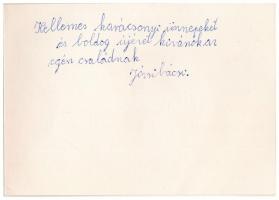 Kellemes karácsonyi ünnepeket
és boldog újévet kívánok az
egész családnak
Józsi bácsi.